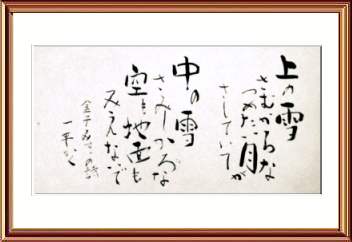 上の雪
さむかろな
つめたい月が
さしていて
中の雪
さみしかろな
空も地面も
みえないで
金子みすゞの詩
一平かく